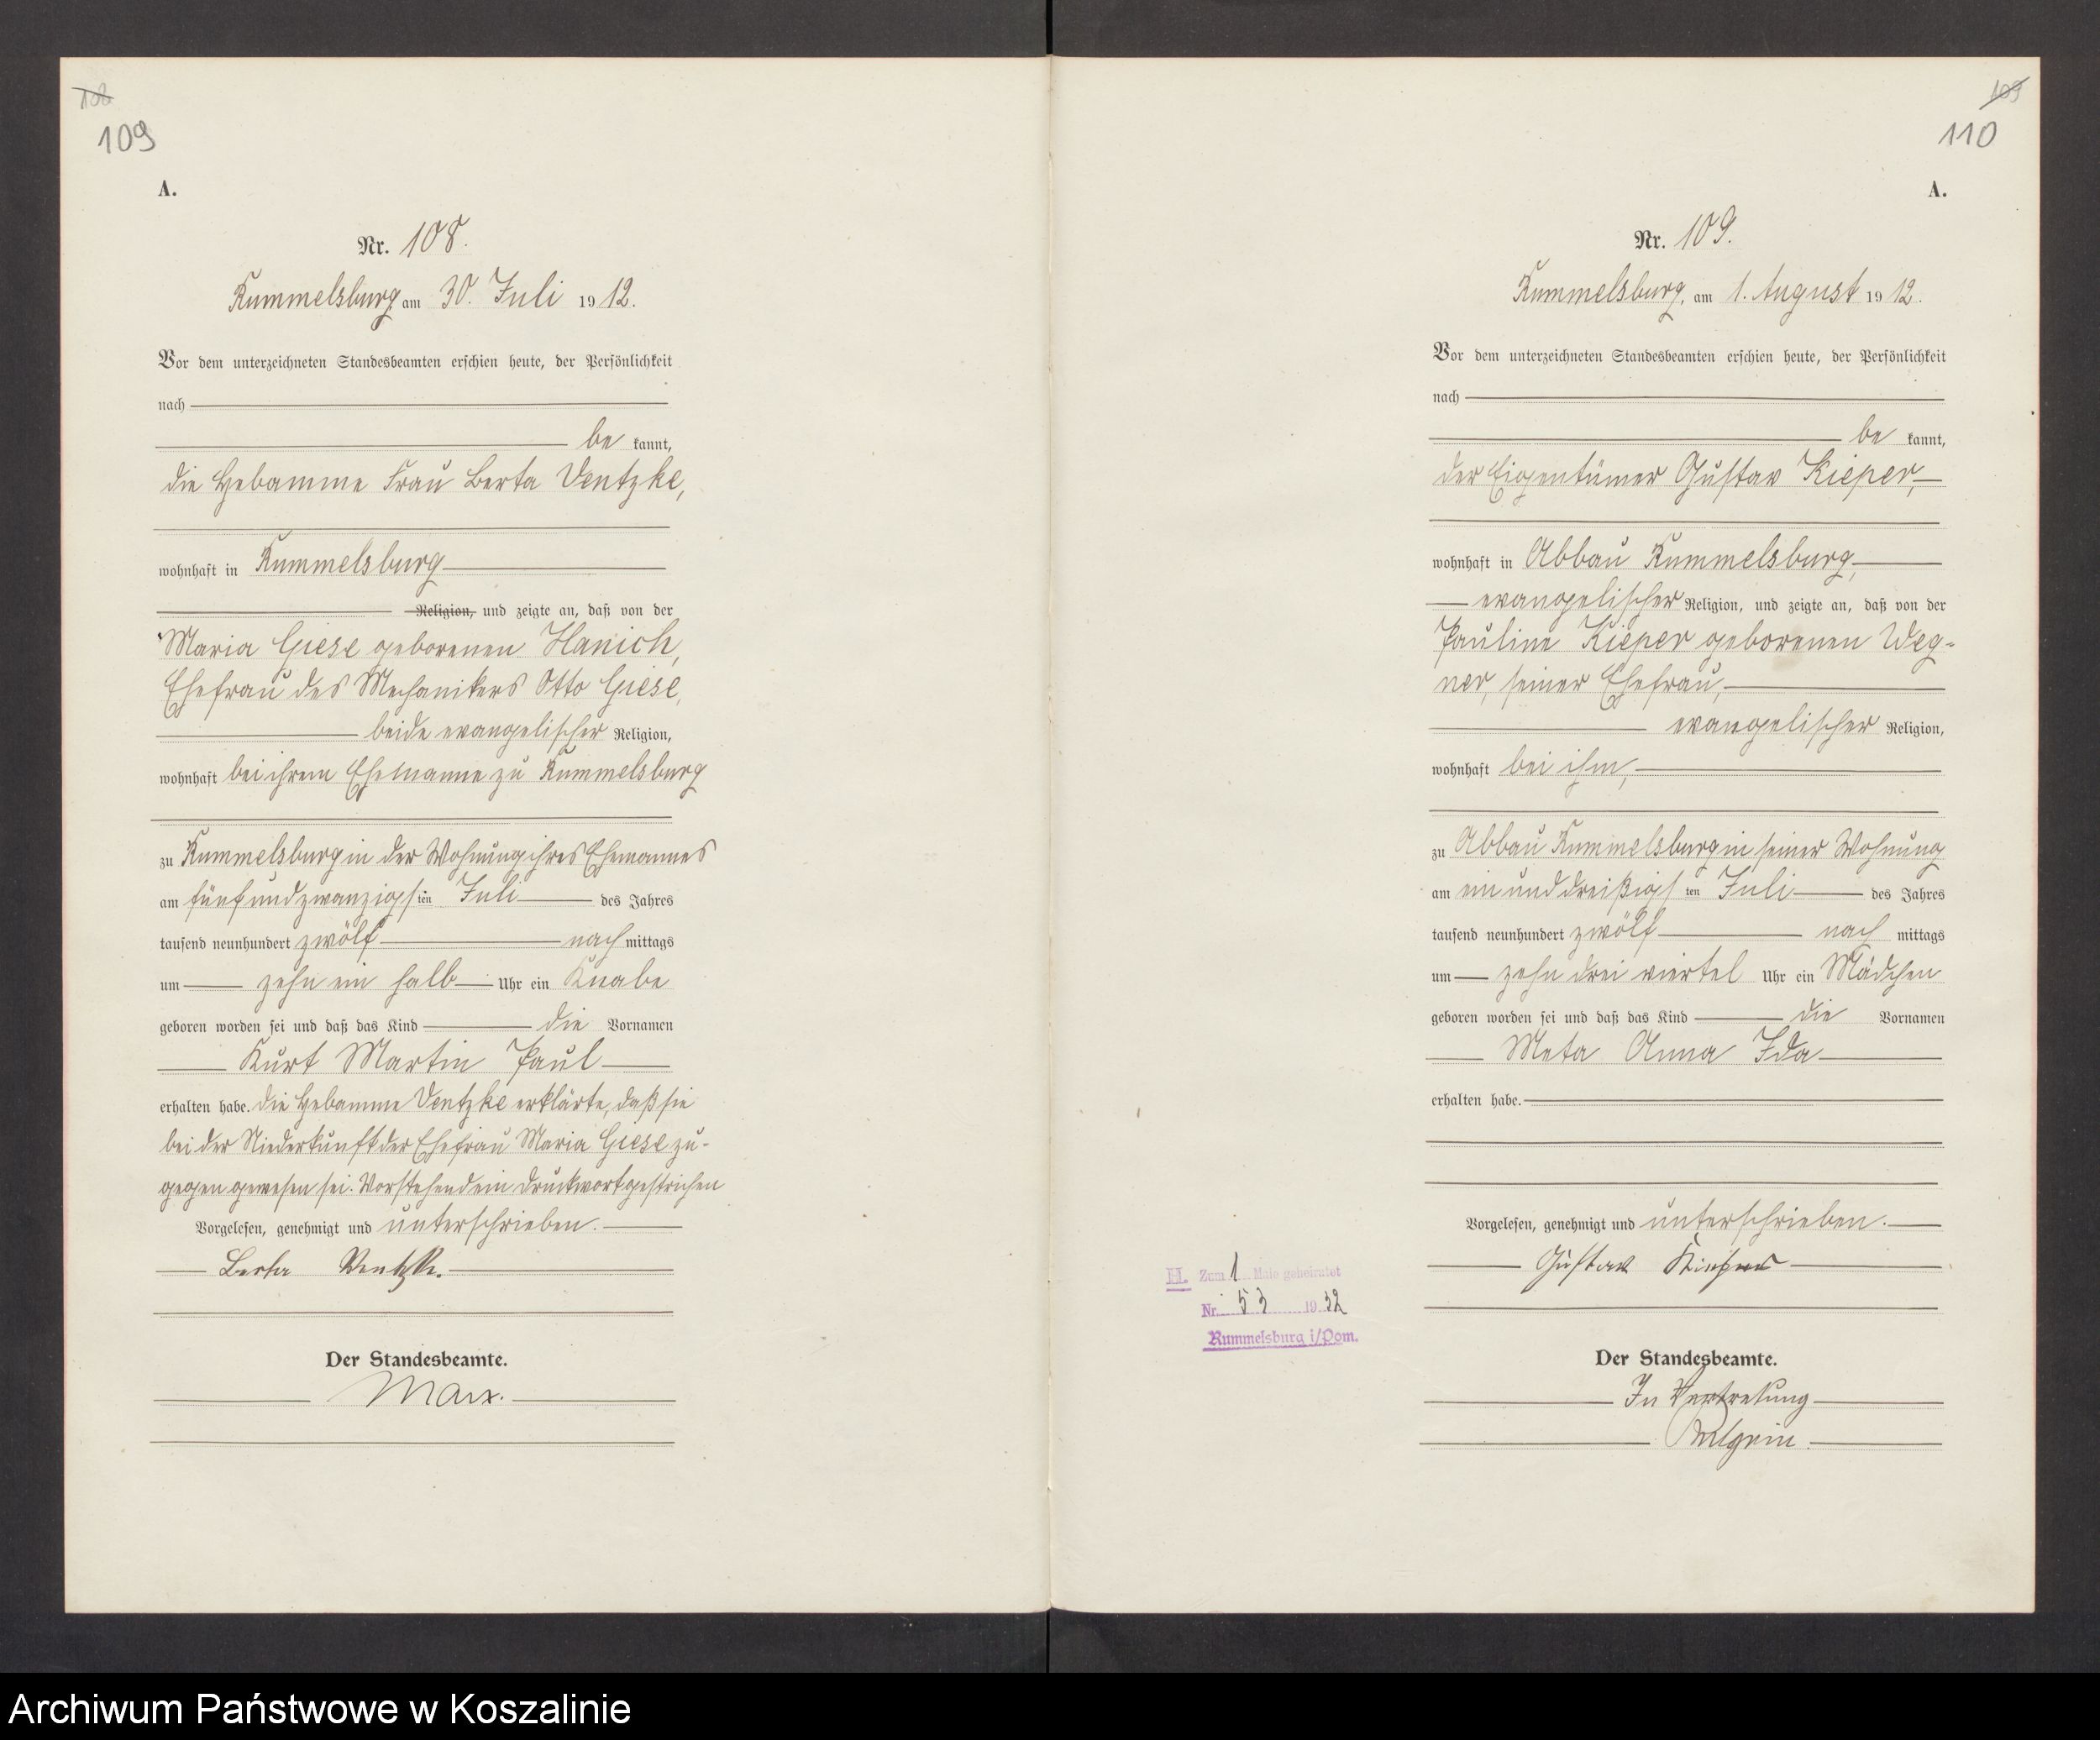 108
109
A.
Nr. 108.
Rummelsburg am 30. Juli 1912.
Vor dem unterzeichneten Standesbeamten erschien heute, der Persönlichkeit
nach
be kannt,
die Hebamme Frau Berta Ventzke,
wohnhaft in Rummelsburg
Religion, und zeigte an, daß von der
Maria Giese geborenen Hanich,
Ehefrau des Mechanikers Otto Giese,
beide evangelischer Religion,
wohnhaft bei ihrem Ehemanne zu Rummelsburg
zu Rummelsburg in der Wohnung ihres Ehemannes
am fünfundzwanzigsten Juli des Jahres
tausend neunhundert zwölf nachmittags
um zehn ein halb Uhr ein Knabe
geboren worden sei und daß das Kind die Vornamen
Kurt Martin Paul
erhalten habe. Die Hebamme Ventzke erklärte, daß sie
bei der Niederkunft der Ehefrau Maria Giese zu-
gegen gewesen sei. Vorstehend ein Druckwort gestrichen
Vorgelesen, genehmigt und unterschrieben.
Berta Ventzke.
Der Standesbeamte.
Marx.
109
110
A.
Nr. 109.
Rummelsburg, am 1. August 1912.
Vor dem unterzeichneten Standesbeamten erschien heute, der Persönlichkeit
nach
be kannt,
der Eigentümer Gustav Kieper,
wohnhaft in Abbau Rummelsburg,
evangelischer Religion, und zeigte an, daß von der
Pauline Kieper geborenen Weg-
ner, seiner Ehefrau,
evangelischer Religion,
wohnhaft bei ihm,
zu Abbau Rummelsburg in seiner Wohnung
am einunddreißigsten Juli des Jahres
tausend neunhundert zwölf nach mittags
um zehn drei viertel Uhr ein Mädchen
geboren worden sei und daß das Kind die Vornamen
Meta Anna Ida
erhalten habe.
Vorgelesen, genehmigt und unterschrieben.
Gustav Kieper
H. Zum 1 Male geheiratet
Nr. 53 1932
Rummelsburg i/Pom.
Der Standesbeamte.
In Vertretung
Archiwum Państwowe w Koszalinie